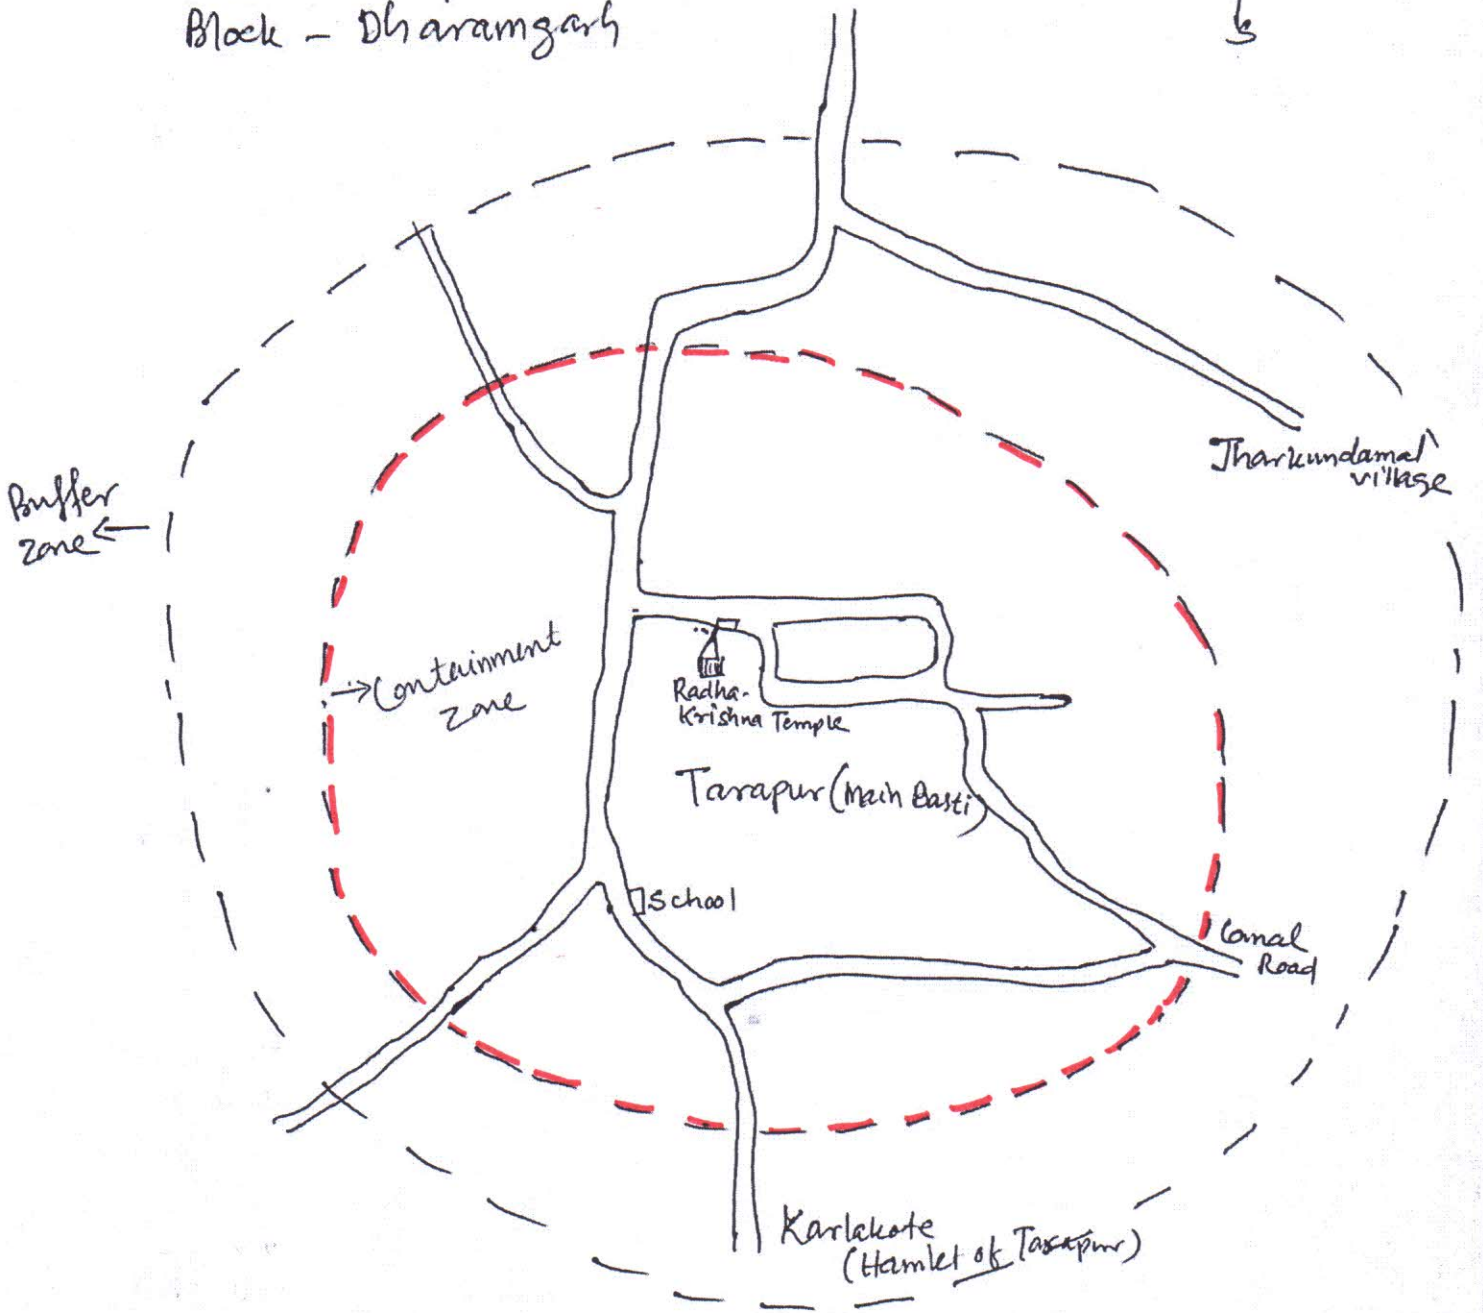 Block - Dharamgarh
Jharkundamal
village
Buffer
zone
Containment
zone
Radha-
Krishna Temple
Tarapur (Main Basti)
School
Canal
Road
Karlakote
(Hamlet of Tarapur)